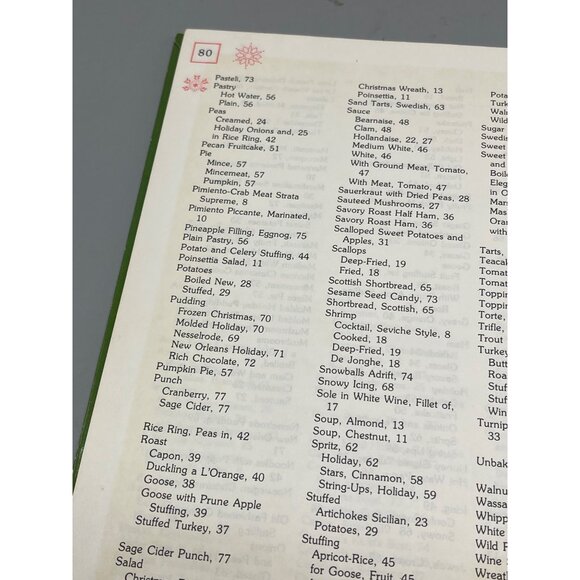 80
Pasteli, 73
Pastry
Hot Water, 56
Plain, 56
Peas
Creamed, 24
Holiday Onions and, 25
in Rice Ring, 42
Pecan Fruitcake, 51
Pie
Mince, 57
Mincemeat, 57
Pumpkin, 57
Pimiento-Crab Meat Strata
Supreme, 8
Pimiento Piccante, Marinated,
10
Pineapple Filling, Eggnog, 75
Plain Pastry, 56
Potato and Celery Stuffing, 44
Poinsettia Salad, 11
Potatoes
Boiled New, 28
Stuffed, 29
Pudding
Frozen Christmas, 70
Molded Holiday, 70
Nesselrode, 69
New Orleans Holiday, 71
Rich Chocolate, 72
Pumpkin Pie, 57
Punch
Cranberry, 77
Sage Cider, 77
Rice Ring, Peas in, 42
Roast
Capon, 39
Duckling a L'Orange, 40
Goose, 38
Goose with Prune Apple
Stuffing, 39
Stuffed Turkey, 37
Sage Cider Punch, 77
Salad
Christmas Wreath, 13
Poinsettia, 11
Sand Tarts, Swedish, 63
Sauce
Bearnaise, 48
Clam, 48
Hollandaise, 22, 27
Medium White, 46
White, 46
With Ground Meat, Tomato,
47
With Meat, Tomato, 47
Sauerkraut with Dried Peas, 28
Sauteed Mushrooms, 27
Savory Roast Half Ham, 36
Savory Roast Ham, 36
Scalloped Sweet Potatoes and
Apples, 31
Scallops
Deep-Fried, 19
Fried, 18
Scottish Shortbread, 65
Sesame Seed Candy, 73
Shortbread, Scottish, 65
Shrimp
Cocktail, Seviche Style, 8
Cooked, 18
Deep-Fried, 19
De Jonghe, 18
Snowballs Adrift, 74
Snowy Icing, 68
Sole in White Wine, Fillet of,
17
Soup, Almond, 13
Soup, Chestnut, 11
Spritz, 62
Holiday, 62
Stars, Cinnamon, 58
String-Ups, Holiday, 59
Stuffed
Artichokes Sicilian, 23
Potatoes, 29
Stuffing
Apricot-Rice, 45
for Goose, Fruit, 45
Sugar
Sweet
Tarts,
Trifle,
Trout
Turkey
33
Wild
Wine